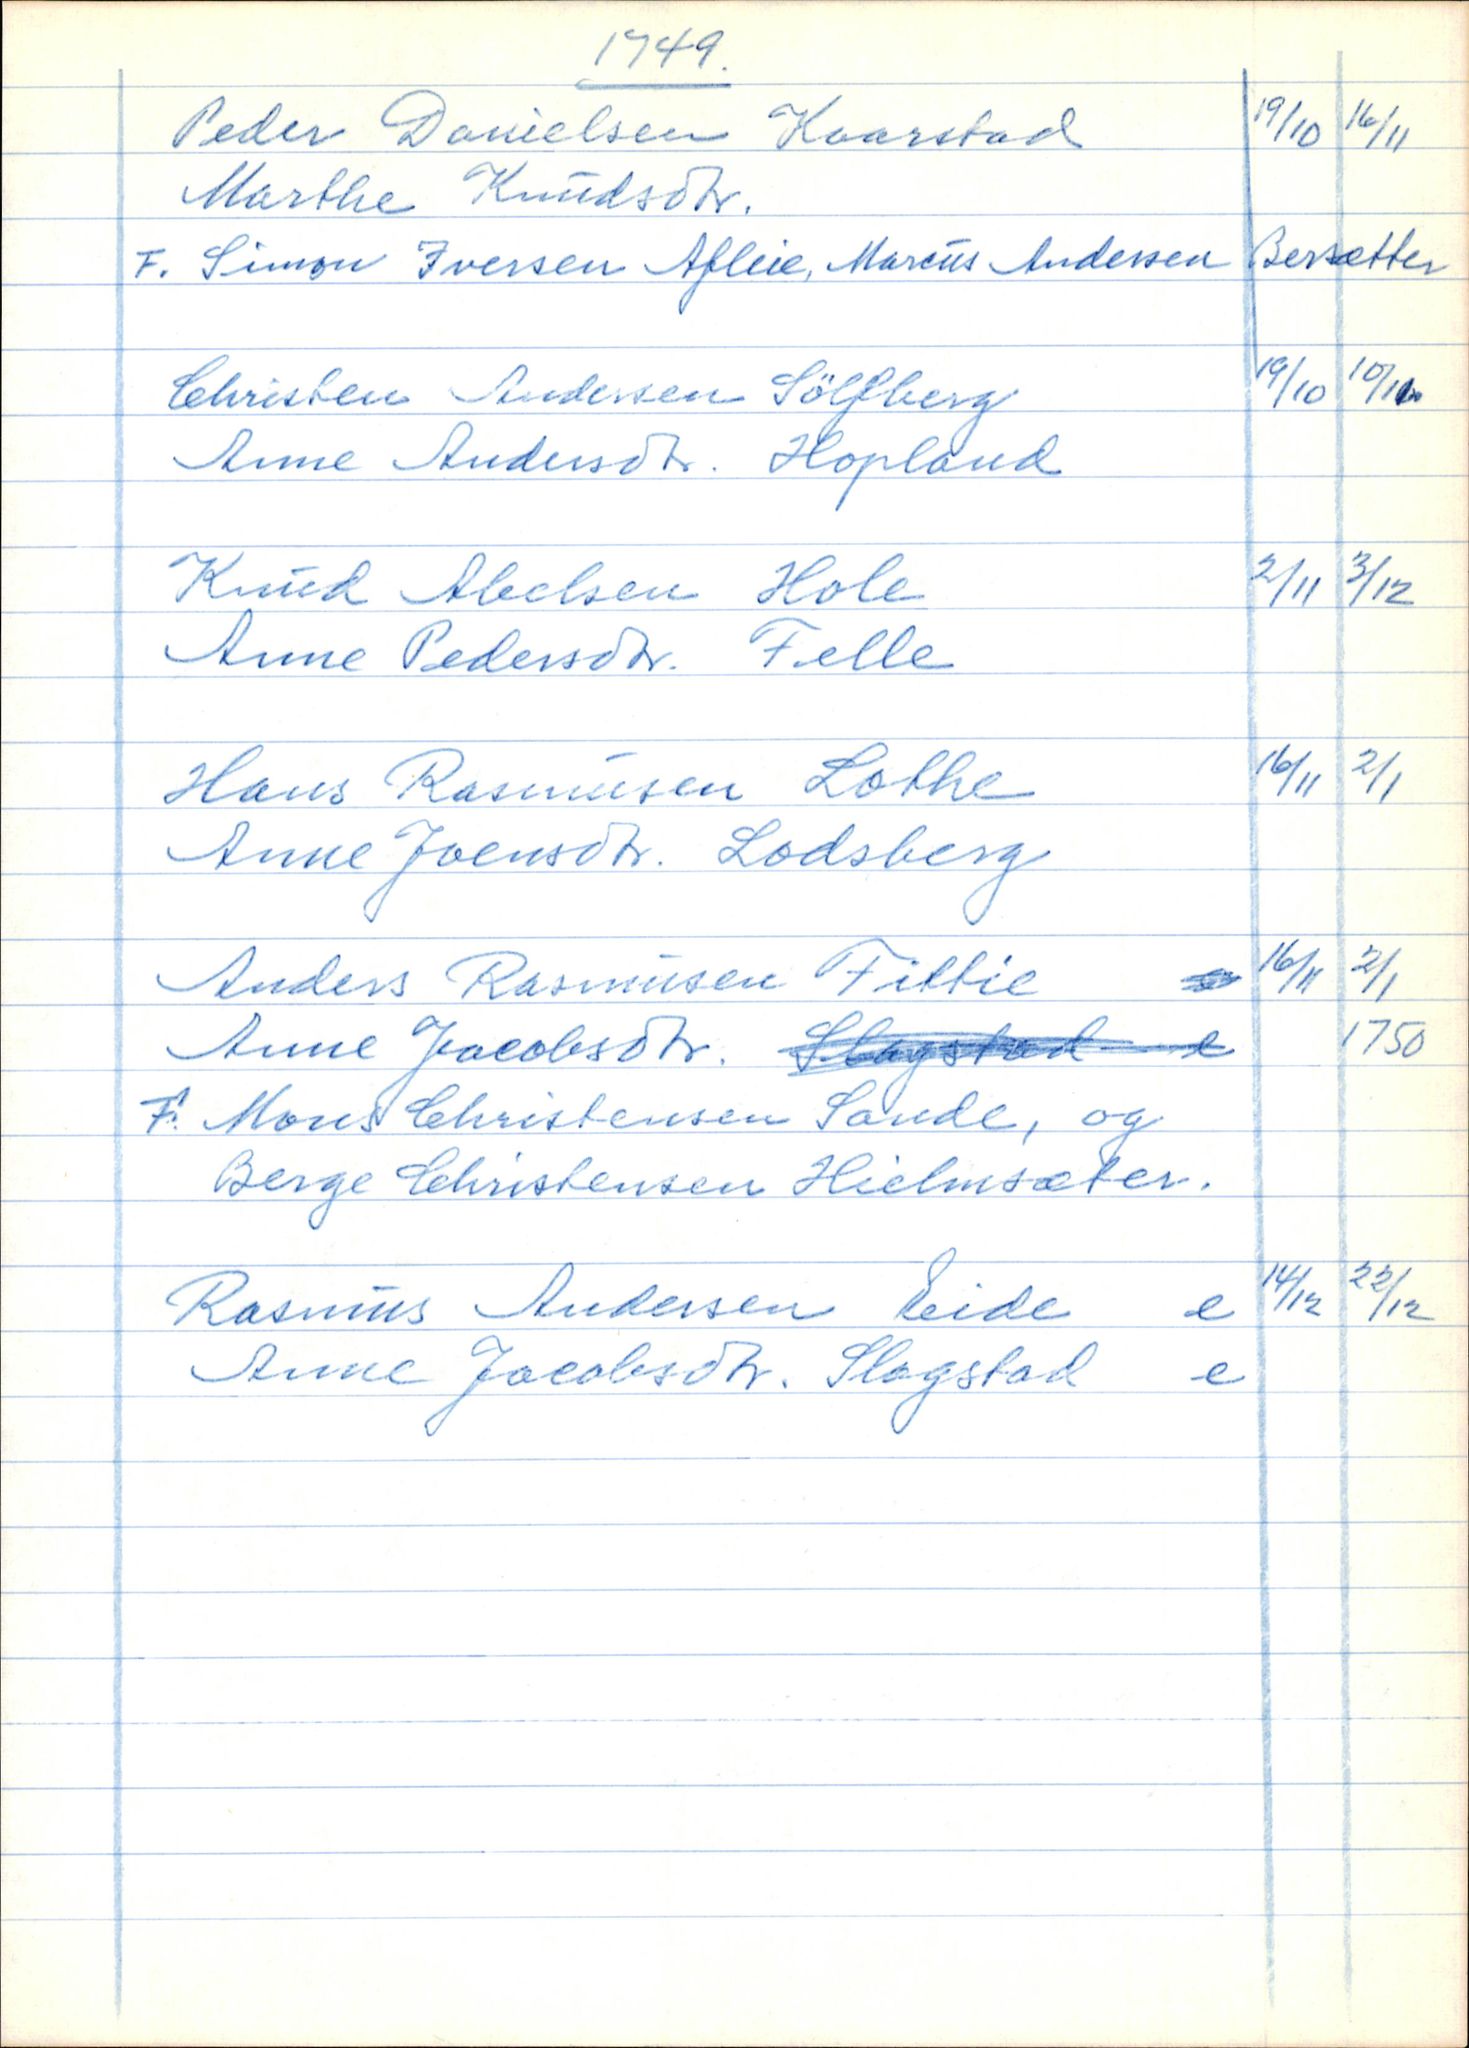 1749.
Peder Danielsen Kaarstad 19/10 16/11
Marthe Knudsdtr.
F. Simon Iversen Afleie, Marcus Andersen Bersætter
Christen Andersen Sölfberg 19/10 10/11
Anne Andersdtr. Hopland
Knud Abelsen Hole 2/11 3/12
Anne Pedersdtr. Felle
Hans Rasmusen Lothe 16/11 2/1
Anne Joensdtr. Lodsberg
Anders Rasmusen Fittie 16/11 2/1
Anne Jacobsdtr. Slagstad e 1750
F. Mons Christensen Sande, og
Berge Christensen Hielmsæter.
Rasmus Andersen Eide e 14/12 22/12
Anne Jacobsdtr. Slagstad e